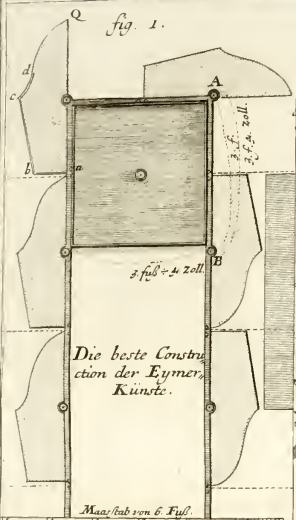 Q
fig. 1.
A
d
c
b
a
3. f. 4. Zoll.
B
3. fuß ÷ 4. Zoll.
Die beste Constru-
ction der Eymer-
Künste.
Maasstab von 6. Fuß.